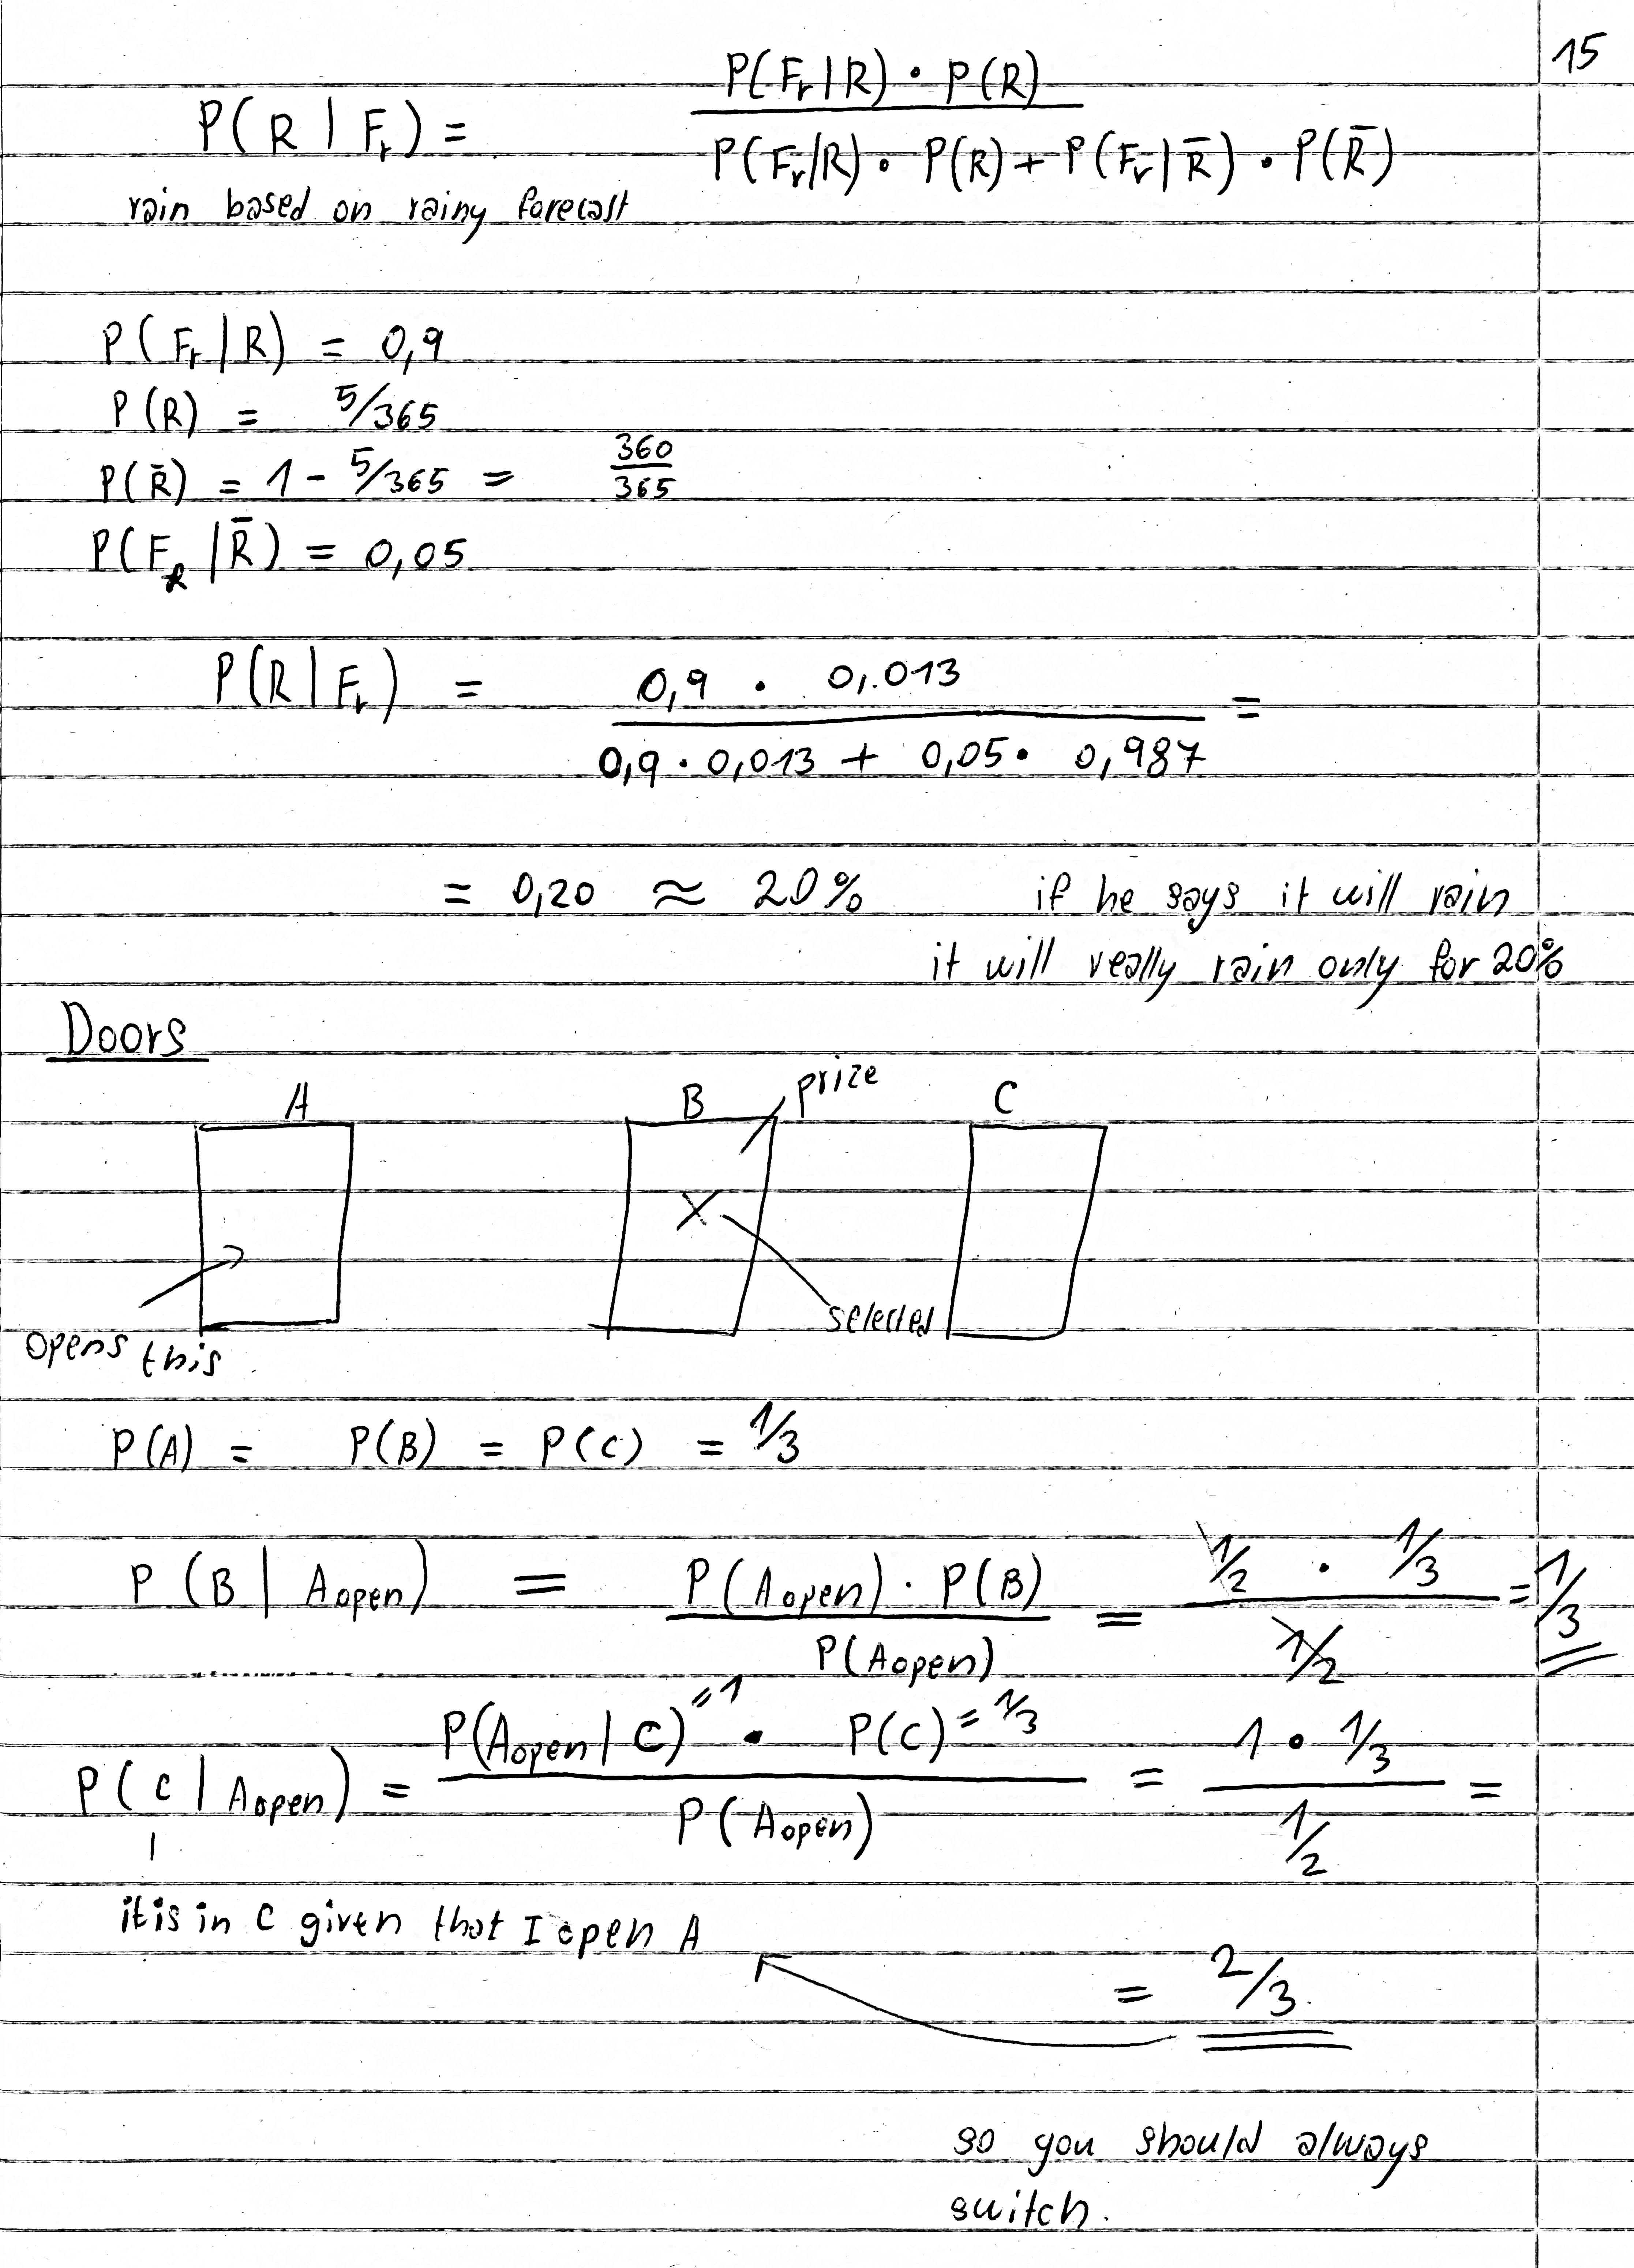 15
P(Fr|R) · P(R)
P(R|Fr) =
P(Fr/R) · P(R) + P(Fr|R̄) · P(R̄)
rain based on rainy forecast
P(Fr|R) = 0,9
P(R) = 5/365
P(R̄) = 1 - 5/365 = 360/365
P(FR|R̄) = 0,05
P(R|Fr) = 0,9 · 0,013 =
0,9 · 0,013 + 0,05 · 0,987
= 0,20 ≈ 20% if he says it will rain
it will really rain only for 20%
Doors
A B prize C
selected
opens this
P(A) = P(B) = P(C) = 1/3
P(B | Aopen) = P(Aopen) · P(B) / P(Aopen) = 1/2 · 1/3 / 1/2 = 1/3
P(C | Aopen) = P(Aopen | C) = 1 · P(C) = 1/3 / P(Aopen) = 1 · 1/3 / 1/2 =
it is in C given that I open A
= 2/3
so you should always
switch.